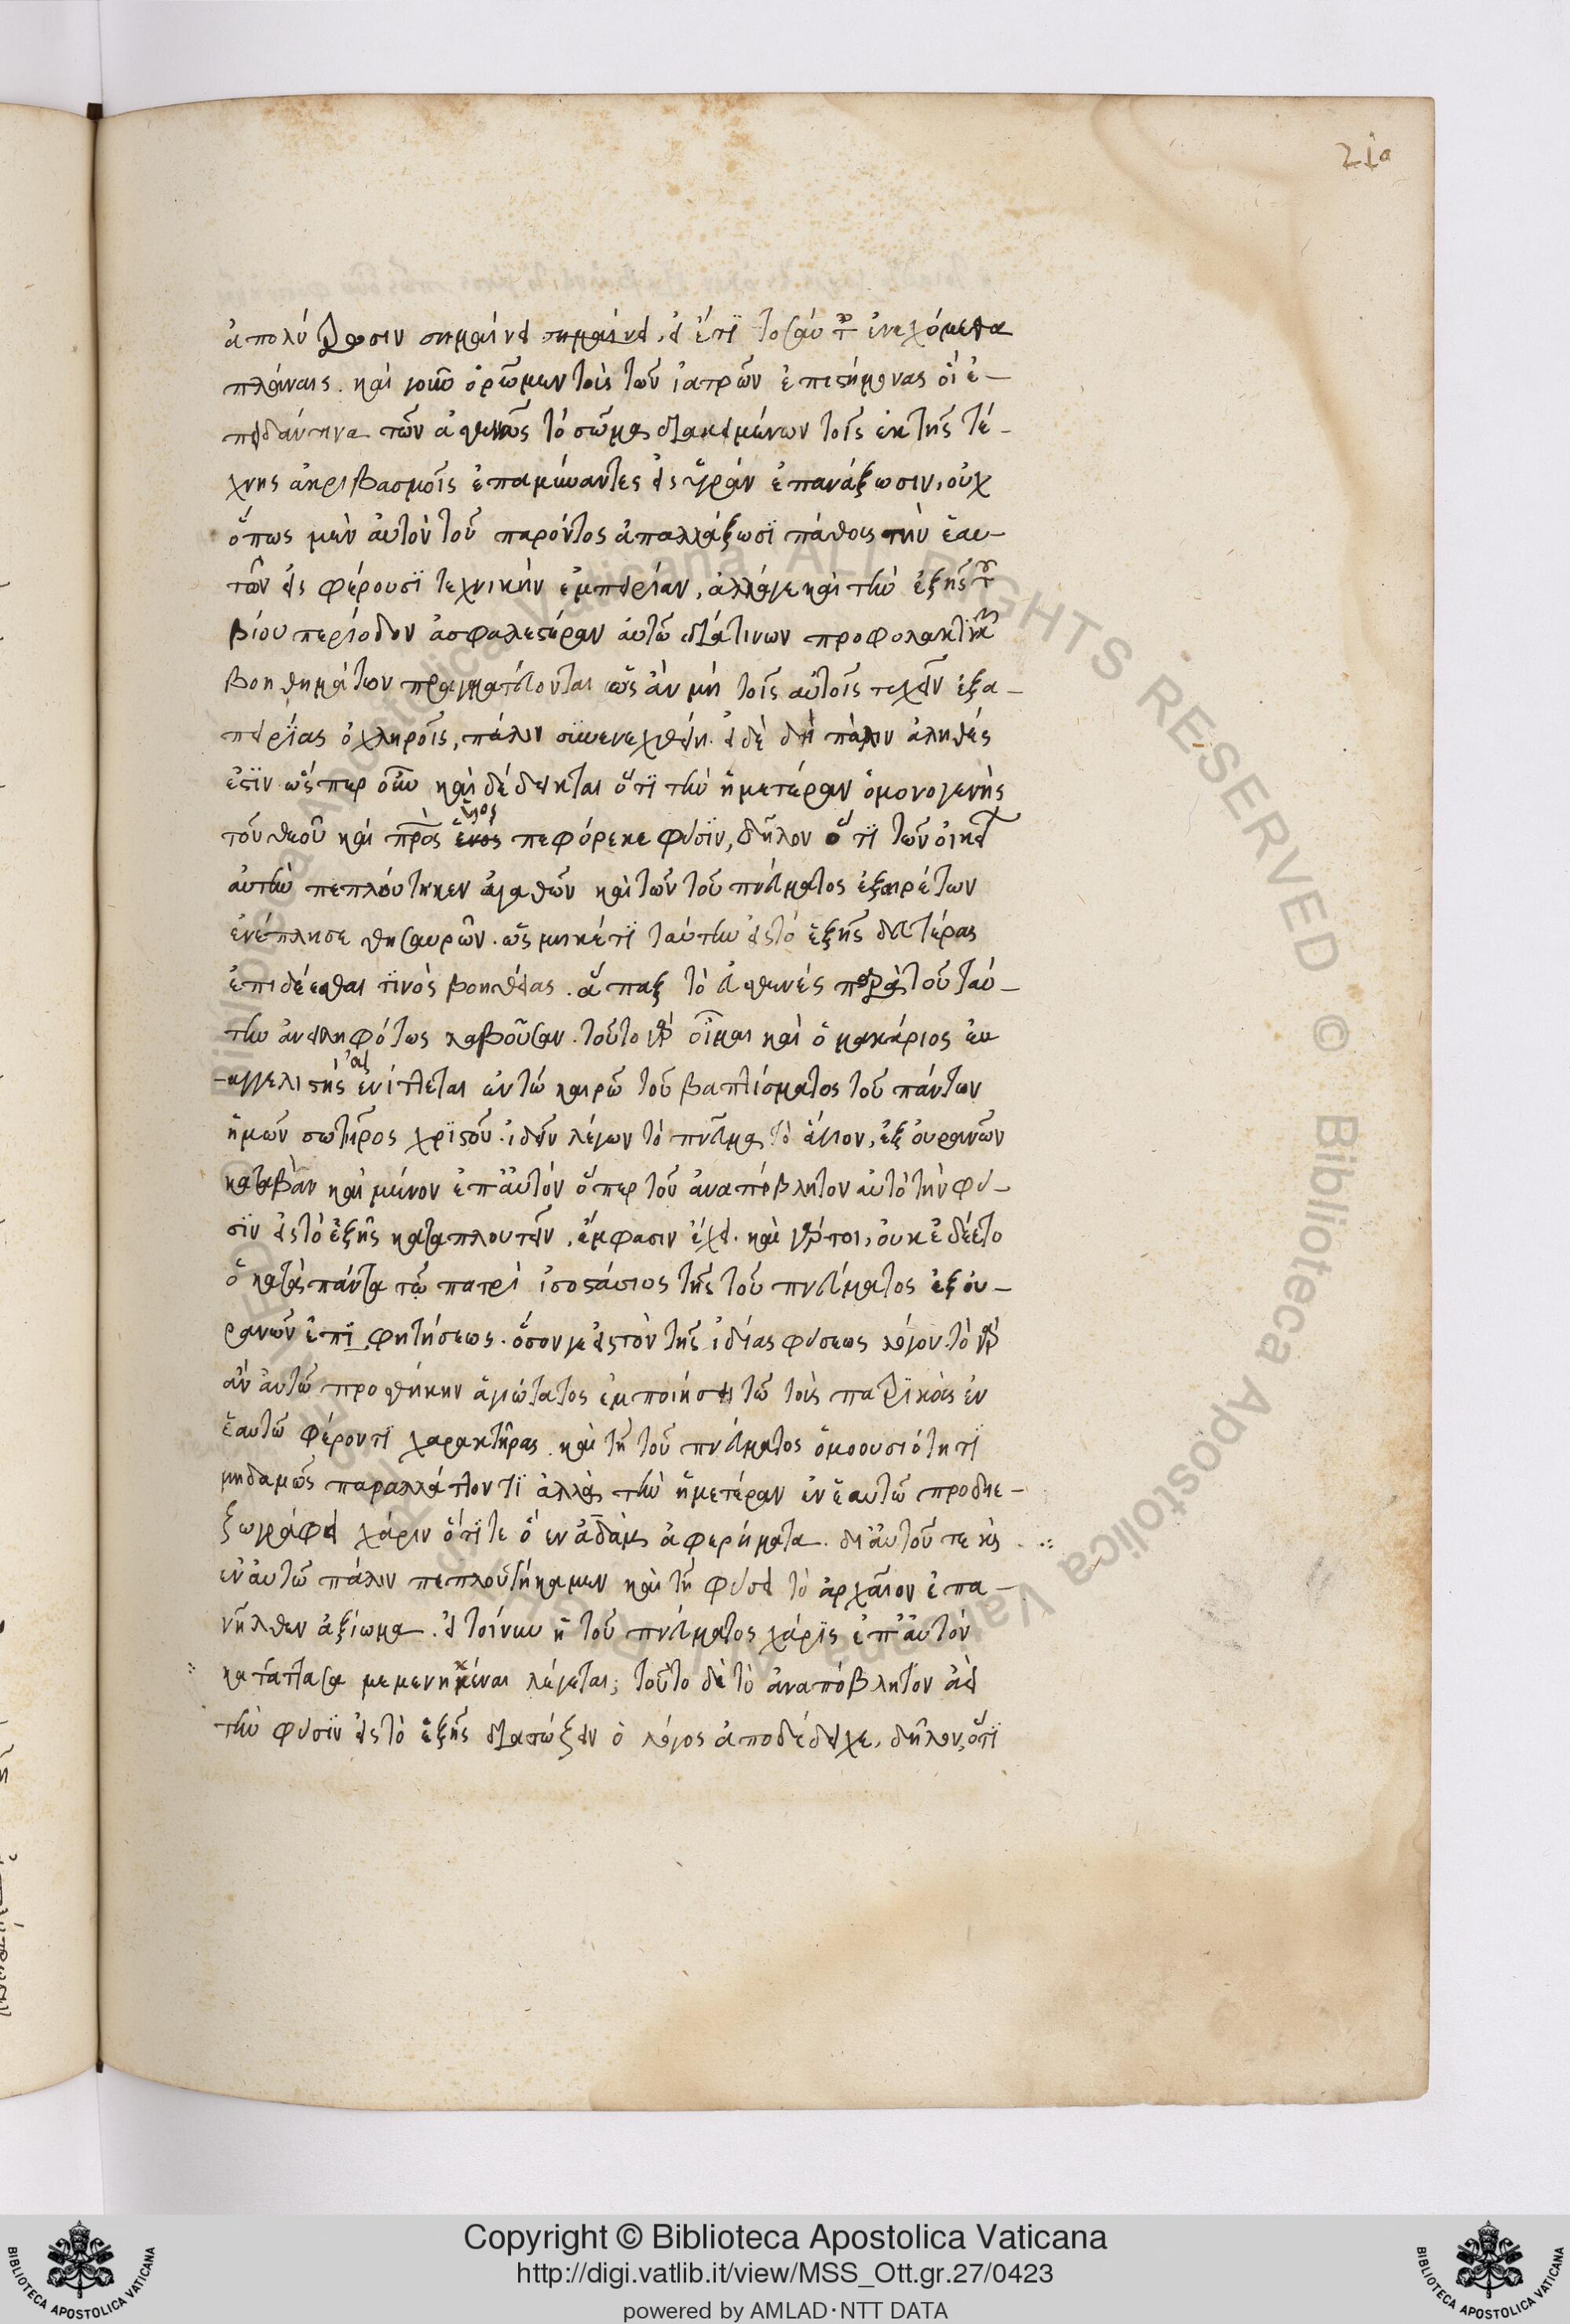 210
ἀπολύτρωσιν σημαίνει σημαίνει. εἰ ἔτι τοσαύταις ἐνεχόμεθα
πλάναις. καὶ γοῦν ὁρῶμεν τοὺς τῶν ἰατρῶν ἐπιστήμονας οἳ ἐ-
πειδάν τινα τῶν ἀσθενῶς τὸ σῶμα διακειμένων τοῖς ἐκ τῆς τέ-
χνης ἀκριβασμοῖς ἐπαμύναντες εἰς ὑγείαν ἐπανάξωσιν, οὐχ
ὅπως μὲν αὐτὸν τοῦ παρόντος ἀπαλλάξωσι πάθους τὴν ἑαυ-
τῶν εἰς φέρουσι τεχνικὴν ἐμπειρίαν, ἀλλά γε καὶ τὴν ἑξῆς τοῦ
βίου περίοδον ἀσφαλεστέραν αὐτῷ διά τινων προφυλακτικῶν
βοηθημάτων πραγματεύονται ὡς ἂν μὴ τοῖς αὐτοῖς τυχὸν ἐξ ἀ-
πειρίας ὀχληροῖς, πάλιν συνενεχθείη. εἰ δὲ δὴ πάλιν ἀληθές
ἐστιν ὥσπερ οὖν καὶ δέδεικται ὅτι τὴν ἡμετέραν ὁ μονογενὴς
τοῦ θεοῦ καὶ πρς πεφόρεκε φύσιν, δῆλον ὅτι τῶν οἰκείων
αὐτὴν πεπλούτηκεν ἀγαθῶν καὶ τῶν τοῦ πνεύματος ἐξαιρέτων
ἐνέπλησε θησαυρῶν. ὡς μηκέτι ταύτην εἰς τὸ ἑξῆς δευτέρας
ἐπιδέεσθαι τινὸς βοηθείας. ἅπαξ τὸ εὐσθενὲς παρὰ τοῦ ταύ-
την ἀνειληφότως λαβοῦσαν. τοῦτο γὰρ οἶμαι καὶ ὁ μακάριος εὐ
-αγγελιστὴς αἰνίττεται ἐν τῷ καιρῷ τοῦ βαπτίσματος τοῦ πάντων
ἡμῶν σωτῆρος χριστοῦ. ἰδεῖν λέγων τὸ πνεῦμα τὸ ἅγιον, ἐξ οὐρανῶν
καταβὰν καὶ μένον ἐπ' αὐτόν ὅπερ τοῦ ἀναπόβλητον αὐτὸ τὴν φύ-
σιν εἰς τὸ ἑξῆς καταπλουτεῖν, ἔμφασιν ἔχει. καὶ γάρτοι, οὐκ ἐδέετο
ὁ κατὰ πάντα τῷ πατρὶ ἰσοστάσιος τῆς τοῦ πνεύματος ἐξ οὐ-
ρανῶν ἐπιφητήσεως. ὅσον γε εἰς τὸν τῆς ἰδίας φύσεως λόγον. τὸ γὰρ
ἂν αὐτῷ προσθήκην ἁγιώτατος ἐμποιήσει τῷ τοὺς πατρικοὺς ἐν
ἑαυτῷ φέροντι χαρακτῆρας. καὶ τῇ τοῦ πνεύματος ὁμοουσιότητι
μηδαμῶς παραλλάττοντι ἀλλὰ τὴν ἡμετέραν ἐν ἑαυτῷ προδιε-
ζωγράφει χάριν ὅτι τε ὃ ἐν ἀδὰμ ἀφερήματα. δι' αὐτοῦ τε καὶ
ἐν αὐτῷ πάλιν πεπλουτήκαμεν καὶ τῇ φύσει τὸ ἀρχαῖον ἐπα-
νῆλθεν ἀξίωμα. εἰ τοίνυν ἡ τοῦ πνεύματος χάρις ἐπ' αὐτόν
καταπτᾶσα μεμενηκέναι λέγεται; τοῦτο δὲ τὸ ἀναπόβλητον ἀεὶ
τὴν φύσιν εἰς τὸ ἑξῆς διασώζειν ὁ λόγος ἀποδέδειχε, δῆλον, ὅτι
Copyright © Biblioteca Apostolica Vaticana
http://digi.vatlib.it/view/MSS_Ott.gr.27/0423
powered by AMLAD·NTT DATA
BIBLIOTECA APOSTOLICA VATICANA
BIBLIOTECA APOSTOLICA VATICANA